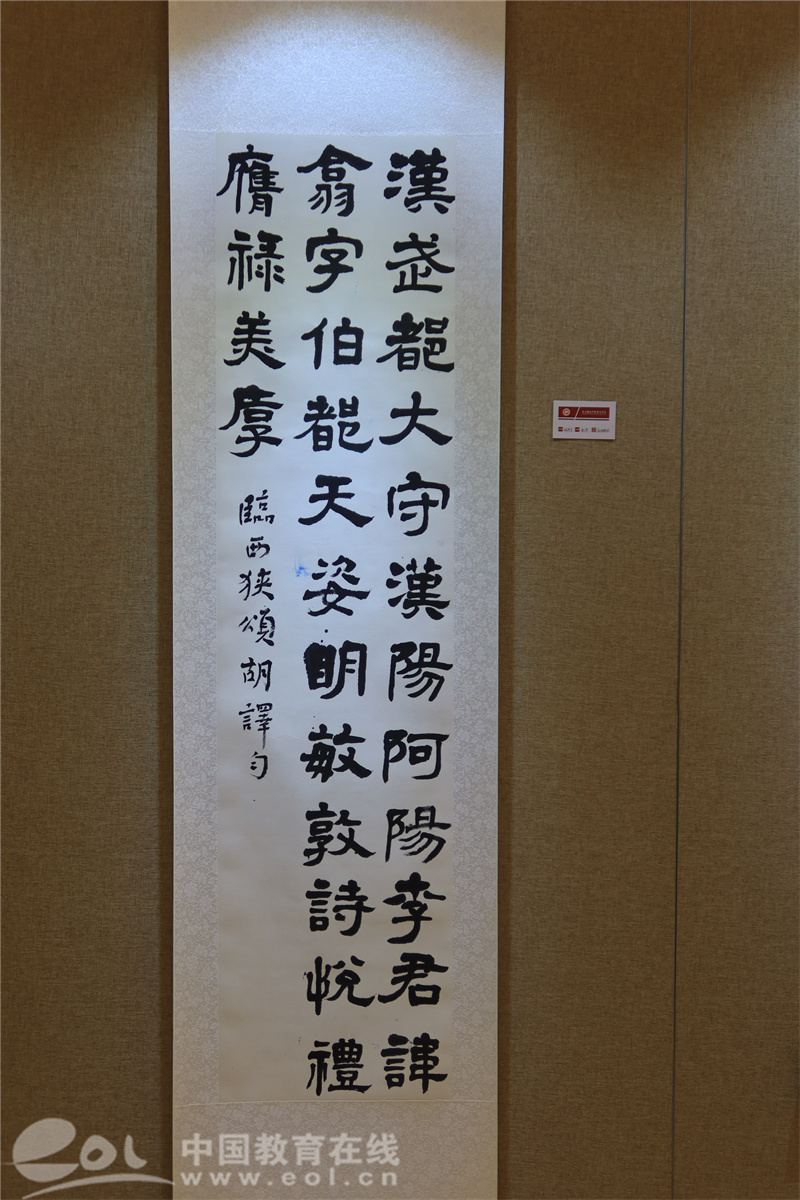 漢武都大守漢陽阿陽李君諱
翕字伯都天姿明敏敦詩悅禮
膺祿美厚
臨西狹頌胡譯勻
eol 中国教育在线
www.eol.cn